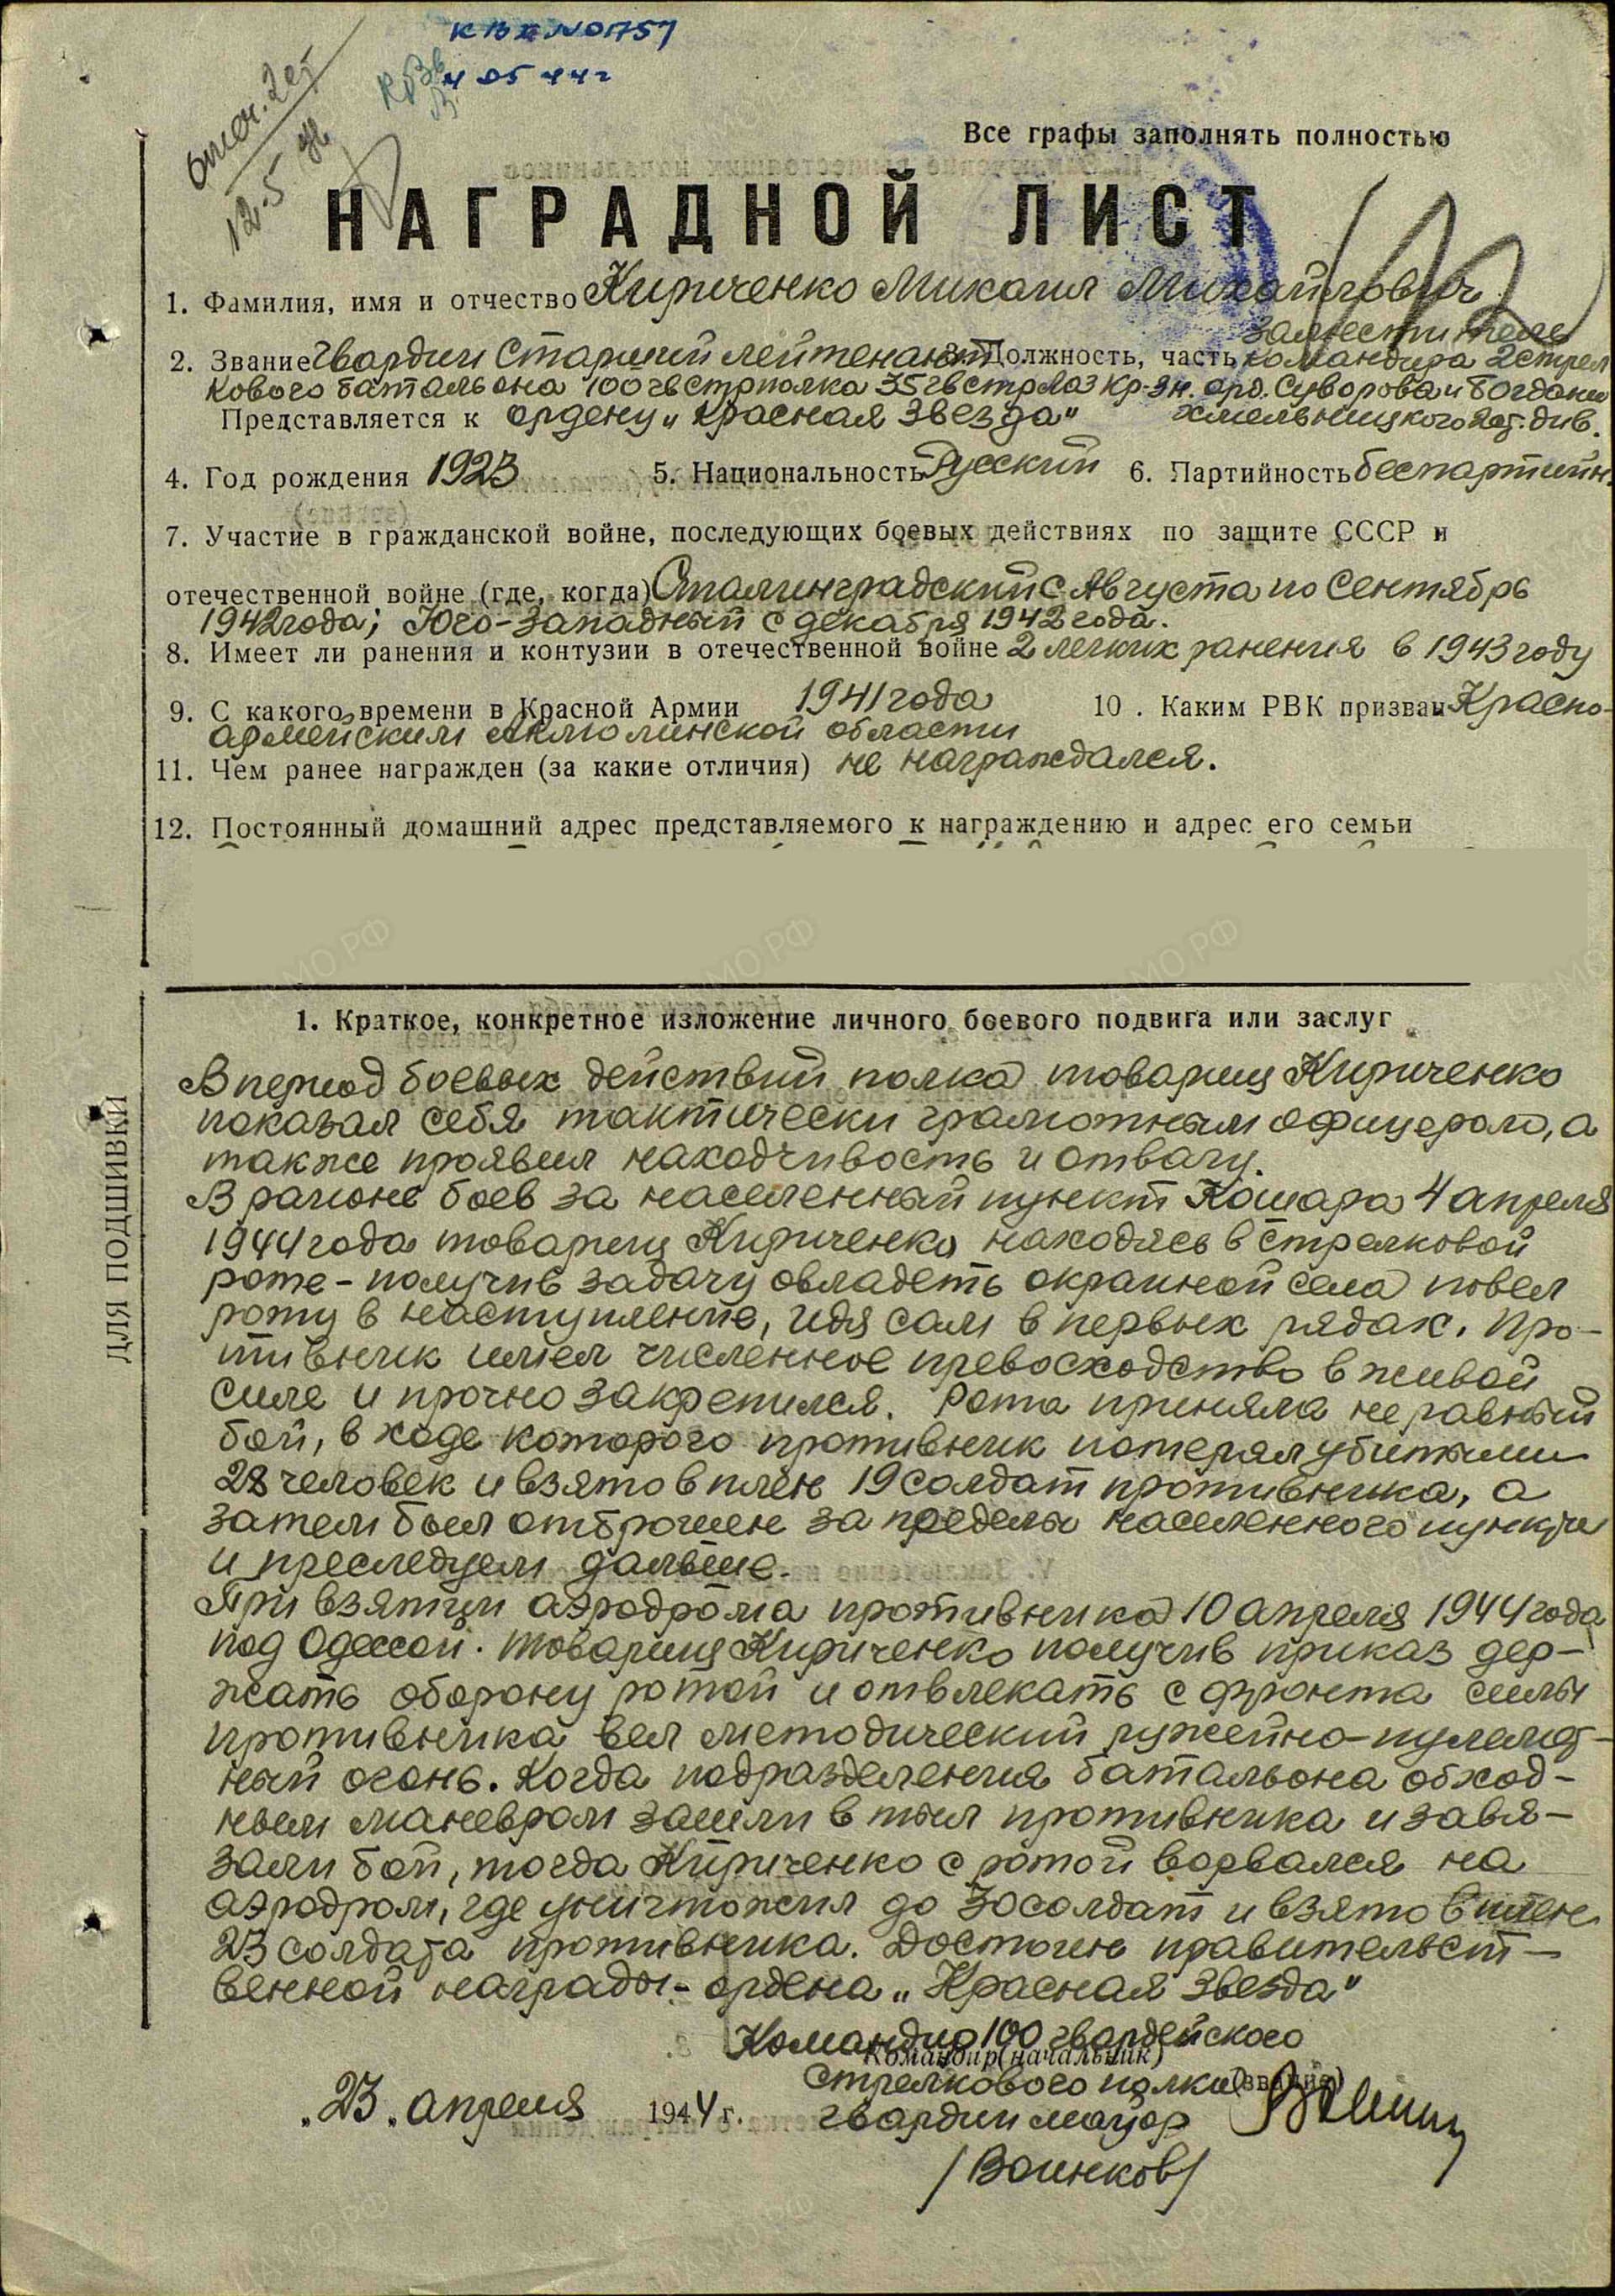 КВХ №01757
4 05 44 г
оточ. 2 ет
12.5
Все графы заполнять полностью
НАГРАДНОЙ ЛИСТ
1. Фамилия, имя и отчество Кириченко Михаил Михайлович
заместитель
2. Звание Гвардии Старший лейтенант 3. Должность, часть командира 2 стрел
кового батальона 100 гв стр полка 35 гв стр Лоз Кр-зн. орд. Суворова и Богдана
Представляется к ордену „Красная Звезда" Хмельницкого 2 ст. див.
4. Год рождения 1923 5. Национальность Русский 6. Партийность беспартийн.
7. Участие в гражданской войне, последующих боевых действиях по защите СССР и
отечественной войне (где, когда) Сталинградский с Августа по Сентябрь
1942 года; Юго-Западный с декабря 1942 года.
8. Имеет ли ранения и контузии в отечественной войне 2 легких ранения в 1943 году
9. С какого времени в Красной Армии 1941 года 10. Каким РВК призван Красно-
армейским Акмолинской области
11. Чем ранее награжден (за какие отличия) не награждался.
12. Постоянный домашний адрес представляемого к награждению и адрес его семьи
1. Краткое, конкретное изложение личного боевого подвига или заслуг
В период боевых действий полка товарищ Кириченко
показал себя тактически грамотным офицером, а
также проявил находчивость и отвагу.
В районе боев за населенный пункт Кошара 4 апреля
1944 года товарищ Кириченко находясь в стрелковой
роте - получив задачу овладеть окраиной села повел
роту в наступление, идя сам в первых рядах. Про-
тивник имел численное превосходство в живой
силе и прочно закрепился. Рота приняла неравный
бой, в ходе которого противник потерял убитыми
28 человек и взято в плен 19 солдат противника, а
затем был отброшен за пределы населенного пункта
и преследуем дальше.
При взятии аэродрома противника 10 апреля 1944 года
под Одессой. Товарищ Кириченко получив приказ дер-
жать оборону ротой и отвлекать с фронта силы
противника вел методический ружейно-пулемет-
ный огонь. Когда подразделения батальона обход-
ным маневром зашли в тыл противника и завя-
зали бой, тогда Кириченко с ротой ворвался на
аэродром, где уничтожил до 30 солдат и взято в плен
23 солдата противника. Достоин правительст-
венной награды - ордена „Красная Звезда"
Командир 100 гвардейского
Командир (начальник)
стрелкового полка (звание)
„23" апреля 1944 г. гвардии майор
/Воинков/
ДЛЯ ПОДШИВКИ